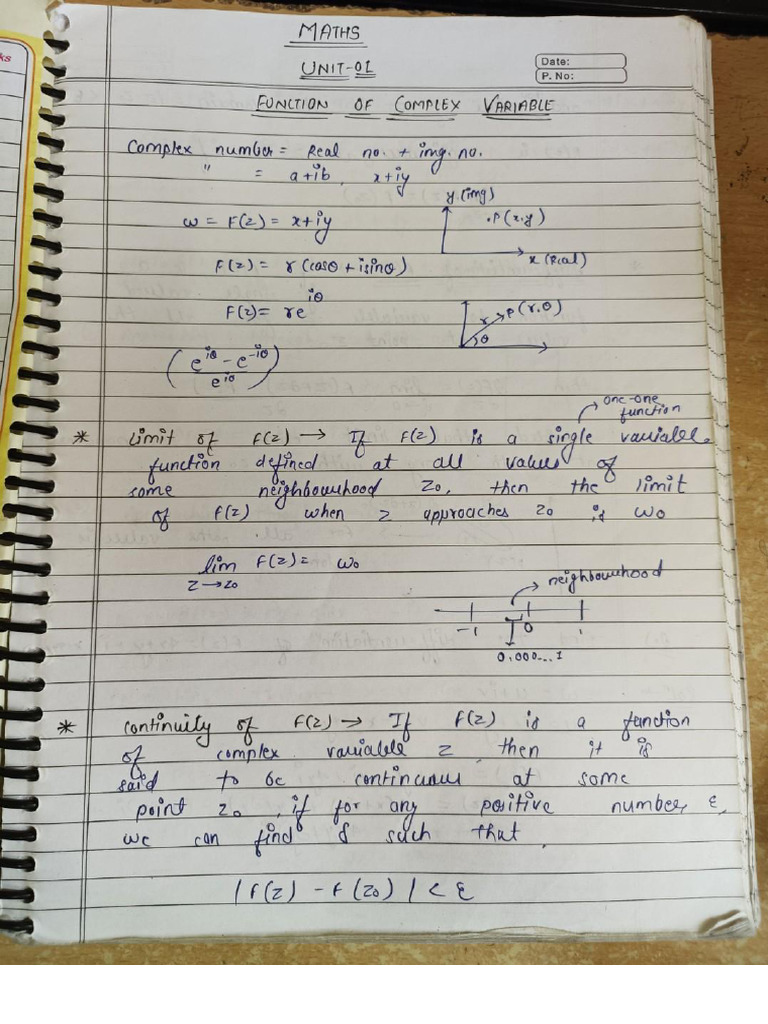 MATHS
UNIT-01
Date:
P. No:
FUNCTION OF COMPLEX VARIABLE
Complex number = Real no. + img. no.
" = a+ib, x+iy
y (img)
w = F(z) = x+iy
.P(x,y)
x (Real)
F(z) = r(cosθ + isinθ)
F(z) = re^iθ
r P(r,θ)
θ
(e^iθ - e^-iθ / e^iθ)
one-one
function
* Limit of F(z) → If F(z) is a single variable
function defined at all values of
some neighbourhood z0, then the limit
of F(z) when z approaches z0 is w0
lim F(z) = w0
z→z0
neighbourhood
-1 0 1
0.000...1
* Continuity of F(z) → If F(z) is a function
of complex variable z then it is
said to be continuous at some
point z0, if for any positive number ε,
we can find δ such that
|F(z) - F(z0)| < ε
ks